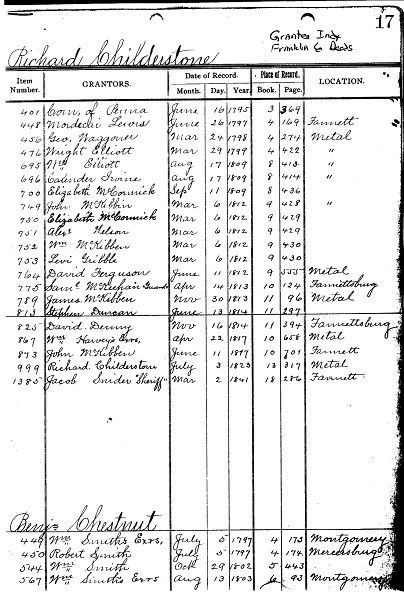 17
Grantee Indx
Franklin Co Deeds
Richard Childerstone
Item Number. GRANTORS. Date of Record. Month. Day. Year. Place of Record. Book. Page. LOCATION.
401 Com. of Penna June 16 1795 3 369
448 Mordecai Lewis June 26 1797 4 169 Fannett
456 Geo. Waggoner Mar 24 1798 4 274 Metal
476 Wright Elliott Mar 29 1799 4 422 "
695 Wm Elliott Aug 17 1809 8 413 "
696 Calender Irvine Aug 17 1809 8 414 "
700 Elizabeth McCormick Sep 11 1809 8 436
749 John McKibbin Mar 6 1812 9 428 "
750 Elizabeth McCormick Mar 6 1812 9 429
751 Alex Nelson Mar 6 1812 9 429
752 Wm McKibben Mar 6 1812 9 430
753 Levi Gribble Mar 6 1812 9 430
764 David Ferguson June 11 1812 9 555 Metal
775 Saml McKeehan Guard Apr 14 1813 10 124 Fannettsburg
789 James McKibben Nov 30 1813 11 96 Metal
813 Stephen Duncan June 13 1814 11 297
825 David Denny Nov 16 1814 11 394 Fannettsburg
867 Wm Harvey's Exrs, Apr 22 1817 10 658 Metal
873 John McKibben June 11 1817 10 701 Fannett
999 Richard Childerston July 3 1823 13 317 Metal
1385 Jacob Snider "Sheriff" Mar 2 1841 18 286 Fannett
Benj: Chestnut
449 Wm Smith's Exrs, July 5 1797 4 173 Montgomery
450 Robert Smith July 5 1797 4 174 Mercersburg
544 Wm Smith Oct 29 1802 5 443
567 Wm Smith's Exrs Aug 13 1803 6 93 Montgomery